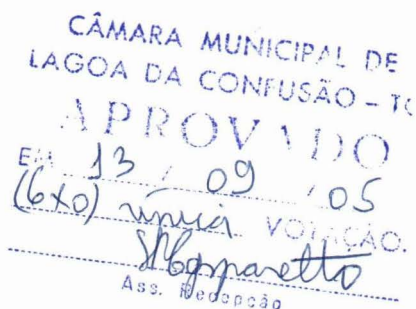 CÂMARA MUNICIPAL DE
LAGOA DA CONFUSÃO - TO
APROVADO
EM 13 / 09 / 05
(6x0) única VOTAÇÃO.
Ass. Recepção